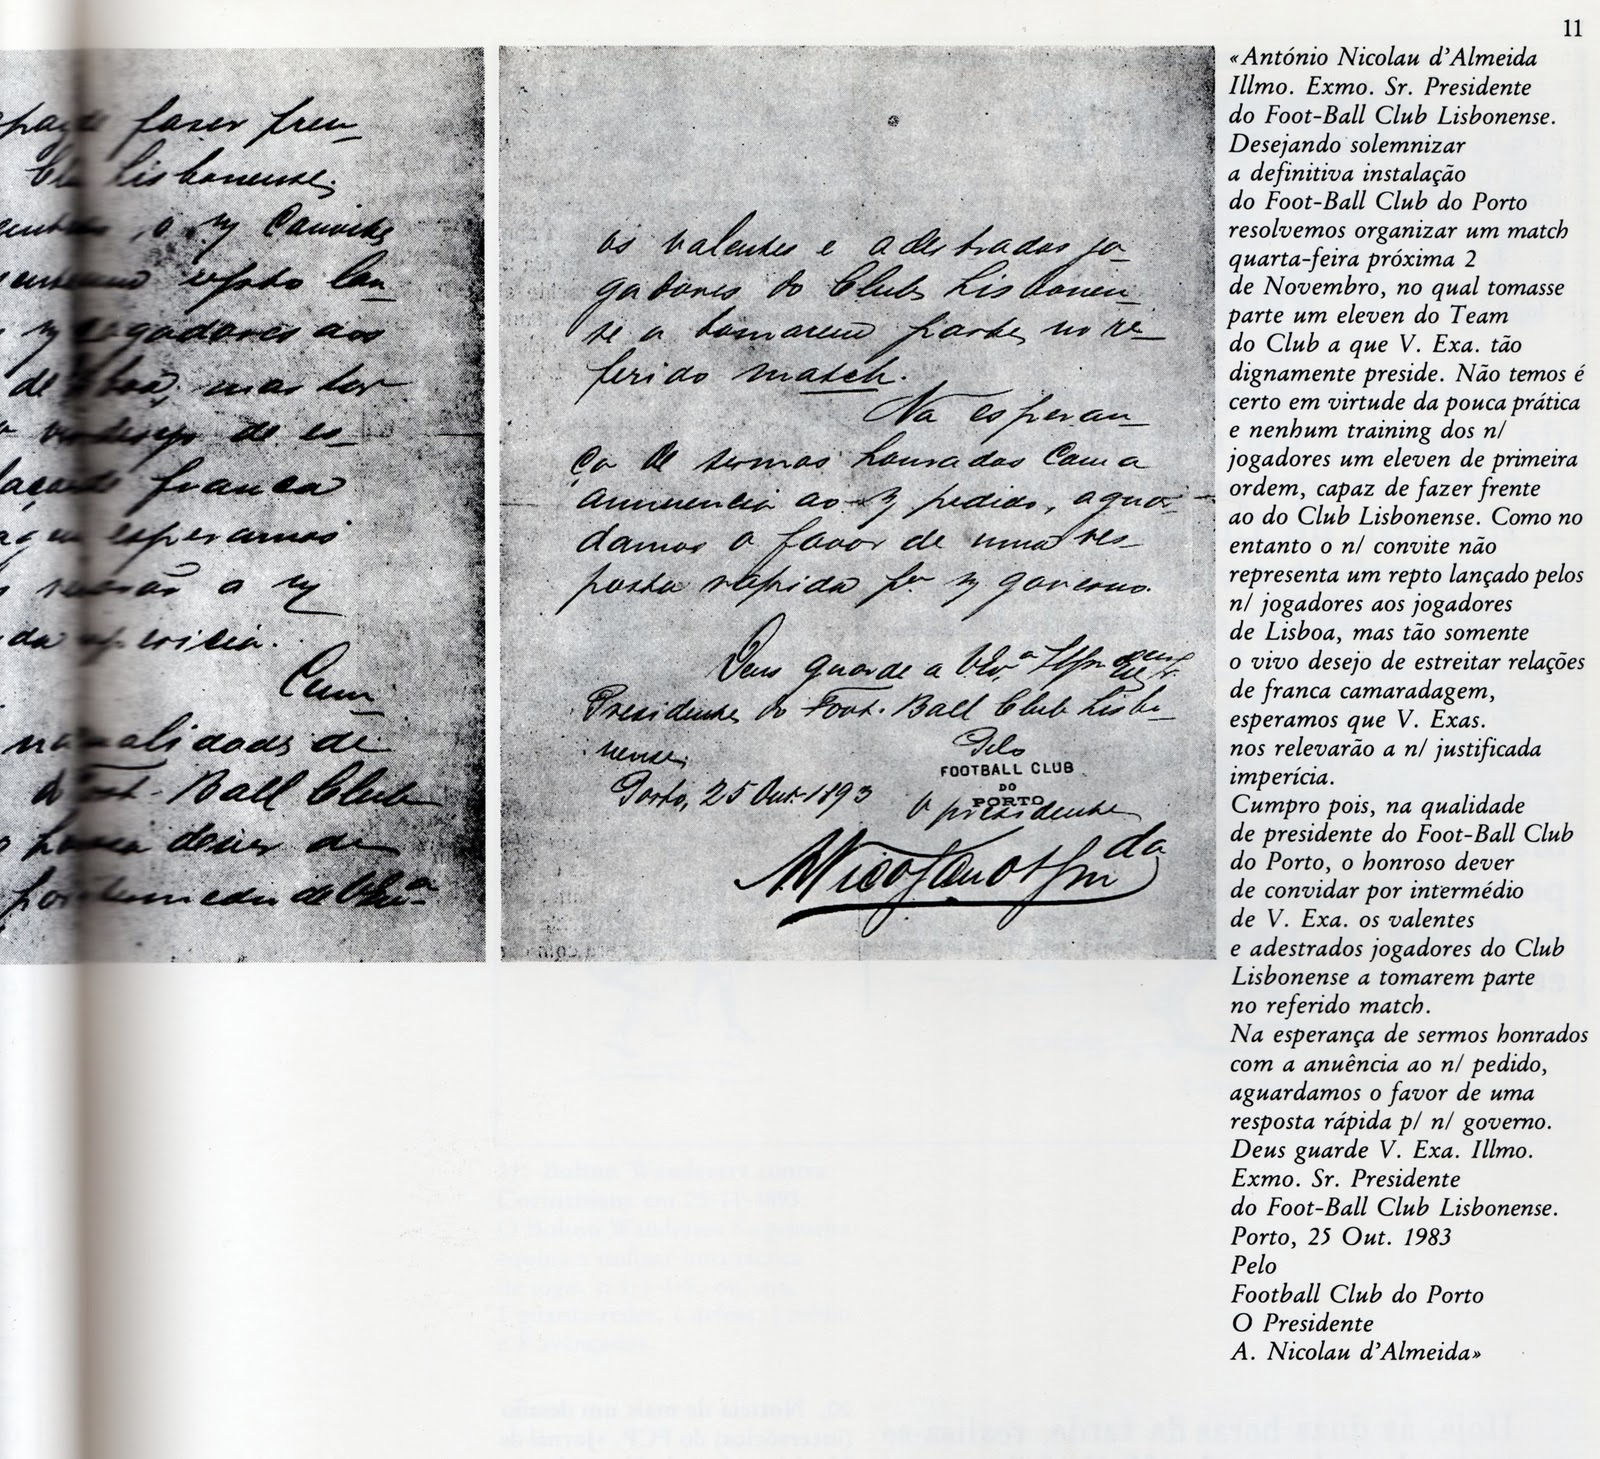 11
pa de fazer fren-
Club Lisbonense.
o n/ Convite
repto lan-
n/ jogadores aos
de Lisboa, mas tao
vivo desejo de es-
franca
esperamos
a n/
impericia.
Cum-
na qualidade de
Foot-Ball Club
honroso dever de
por intermedio de V. Exª
os valentes e adestrados jo-
gadores do Club Lisbonen-
se a tomarem parte no re-
ferido match.
Na esperan-
ça de sermos honrados com a
annuencia ao n/ pedido, aguar-
damos o favor de uma res-
posta rapida pª n/ governo.
Deus guarde a V. Exª Illmo Exmo Sr.
Presidente do Foot-Ball Club Lisbo-
nense.
Pelo
FOOTBALL CLUB
DO
PORTO
Porto, 25 Out. 1893
O presidente
A Nicolau d'Almda
«António Nicolau d'Almeida
Illmo. Exmo. Sr. Presidente
do Foot-Ball Club Lisbonense.
Desejando solemnizar
a definitiva instalação
do Foot-Ball Club do Porto
resolvemos organizar um match
quarta-feira próxima 2
de Novembro, no qual tomasse
parte um eleven do Team
do Club a que V. Exa. tão
dignamente preside. Não temos é
certo em virtude da pouca prática
e nenhum training dos n/
jogadores um eleven de primeira
ordem, capaz de fazer frente
ao do Club Lisbonense. Como no
entanto o n/ convite não
representa um repto lançado pelos
n/ jogadores aos jogadores
de Lisboa, mas tão somente
o vivo desejo de estreitar relações
de franca camaradagem,
esperamos que V. Exas.
nos relevarão a n/ justificada
imperícia.
Cumpro pois, na qualidade
de presidente do Foot-Ball Club
do Porto, o honroso dever
de convidar por intermédio
de V. Exa. os valentes
e adestrados jogadores do Club
Lisbonense a tomarem parte
no referido match.
Na esperança de sermos honrados
com a anuência ao n/ pedido,
aguardamos o favor de uma
resposta rápida p/ n/ governo.
Deus guarde V. Exa. Illmo.
Exmo. Sr. Presidente
do Foot-Ball Club Lisbonense.
Porto, 25 Out. 1983
Pelo
Football Club do Porto
O Presidente
A. Nicolau d'Almeida»